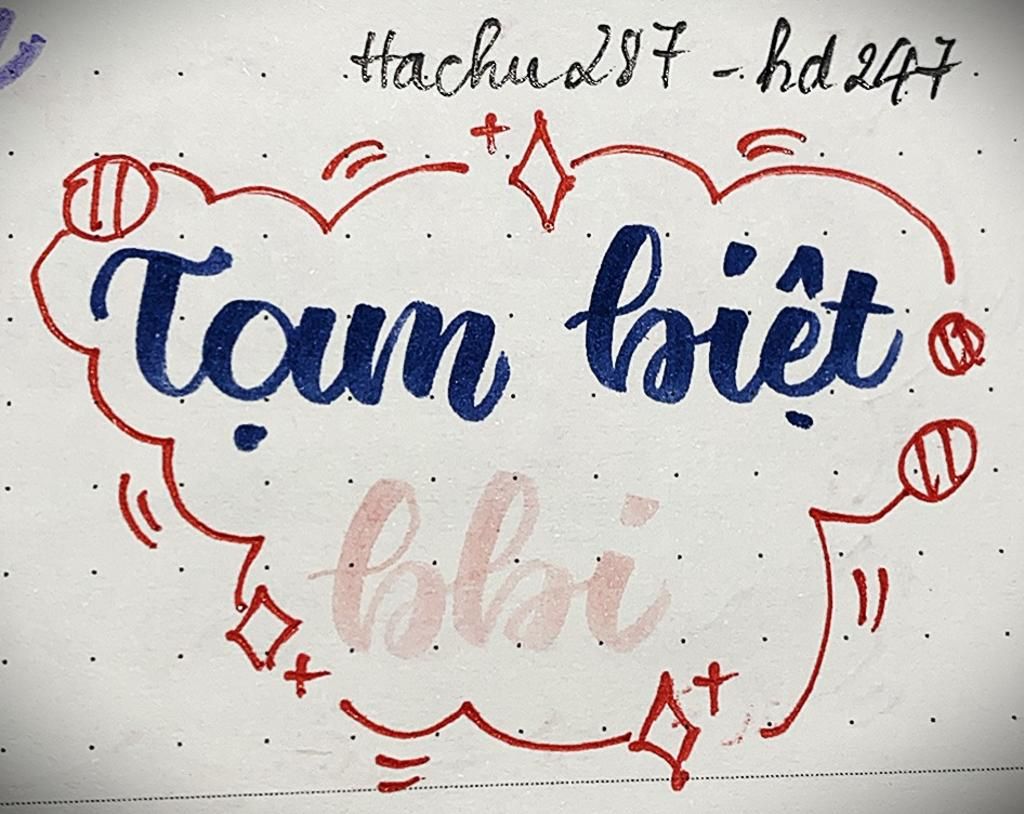 Hachu287 - hd247
Tạm biệt
bbi